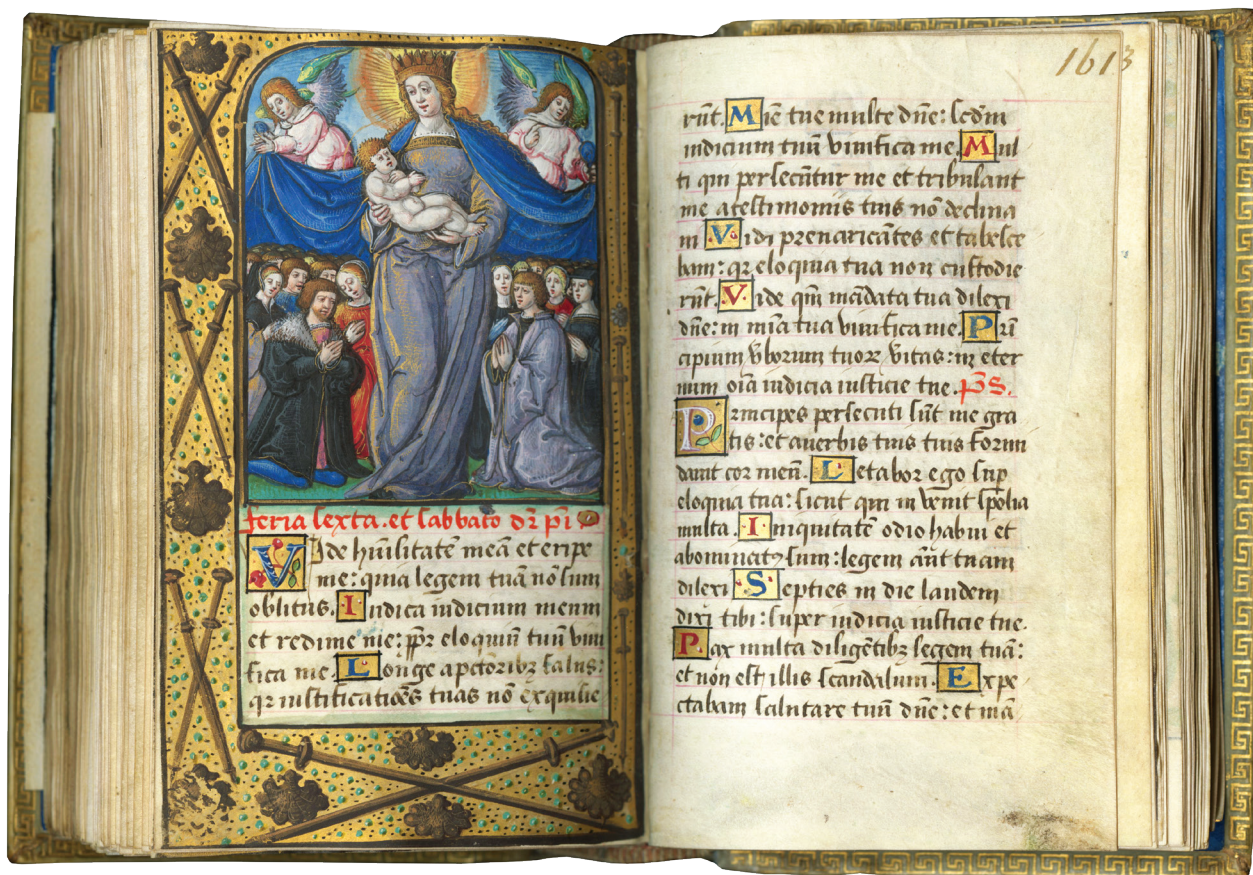 feria sexta. et sabbato dr̄ ps̄
Vide hūilitatē meā et eripe
me: quia legem tuā nō sum
oblitus. Iudica iudicium meum
et redime me: ꝓpt̄ eloquiū tuū vivi
fica me. Longe a pctōribꝫ salus:
qꝛ iustificatiōes tuas nō exquisie
1613
rūt. Miē tue multe dn̄e: scdm̄
iudicium tuū vivifica me. Mul
ti qui persecūtur me et tribulant
me a testimoniis tuis nō declina
vi Vidi prevaricātes et tabesce
bam: qꝛ eloquia tua non custodie
rūt. Vide qm̄ mādata tua dilexi
dn̄e: in mīa tua vivifica me. Pri
cipium v̄borum tuoꝝ vitas: in eter
num oīa iudicia iusticie tue. ps̄.
Principes persecuti sūt me gra
tis: et a verbis tuis tuis formi
davit cor meū. Letabor ego sup̄
eloquia tua: sicut qui invenit spolia
multa. Iniquitatē odio habui et
abominatꝰ sum: legem aūt tuam
dilexi Septies in die laudem
dixi tibi: super iudicia iusticie tue.
Pax multa diligētibꝫ legem tuā:
et non est illis scandalum. Expe
ctabam salutare tuū dn̄e: et mā